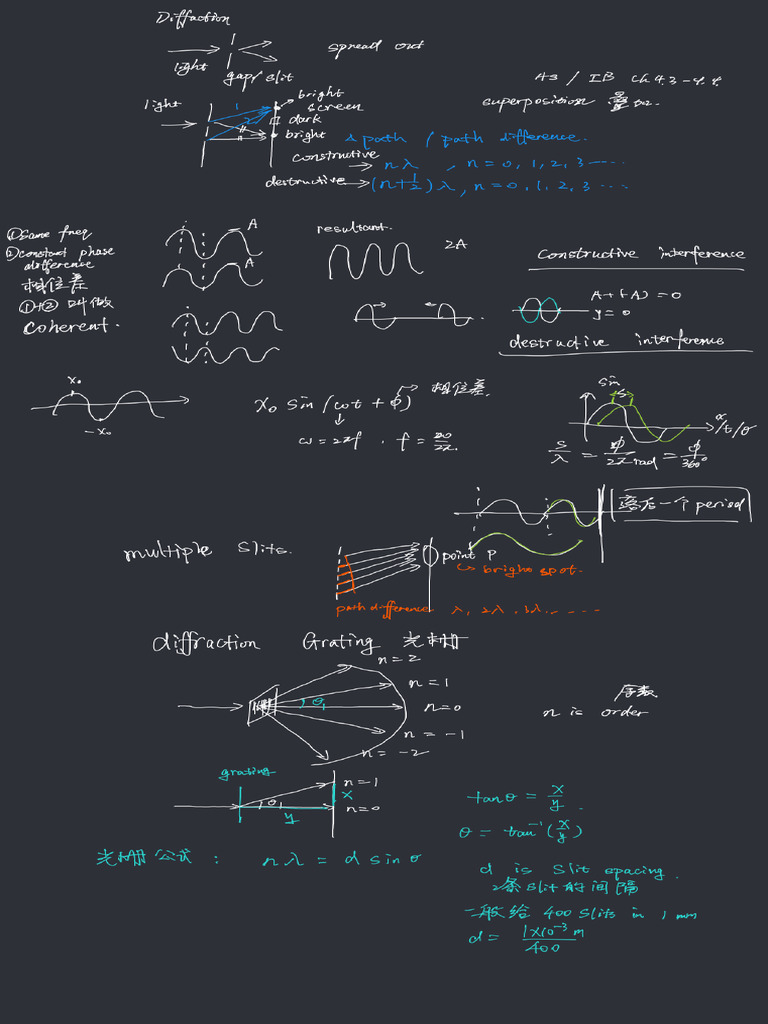 Diffraction
light
gap/slit
spread out
AS / IB Ch 4.3-4.4
superposition 叠加
light
1
2
bright
screen
dark
bright
Δpath / path difference.
constructive → nλ , n = 0, 1, 2, 3 ....
destructive → (n+½)λ, n = 0, 1, 2, 3 ...
① same freq
② constant phase difference
相位差
①+② 叫做
coherent.
A
A
resultant
2A
constructive interference
A+(-A) = 0
y = 0
destructive interference
x₀
-x₀
x₀ sin (ωt + ϕ) → 相位差.
ω = 2πf , f = ω/2π.
sin
s
x/t/θ
s/λ = ϕ/2π rad = ϕ/360°
落后一个period
multiple slits.
point P
↳ bright spot.
path difference λ, 2λ, 3λ, .....
diffraction Grating 光栅
n = 2
n = 1
θ₁
n = 0
n = -1
n = -2
序数
n is order
grating
n = 1
θ₁
x
n = 0
y
tanθ = x/y .
θ = tan⁻¹(x/y)
光栅公式 : nλ = d sinθ
d is slit spacing.
2条slit的间隔
一般给 400 slits in 1 mm
d = 1×10⁻³ m / 400